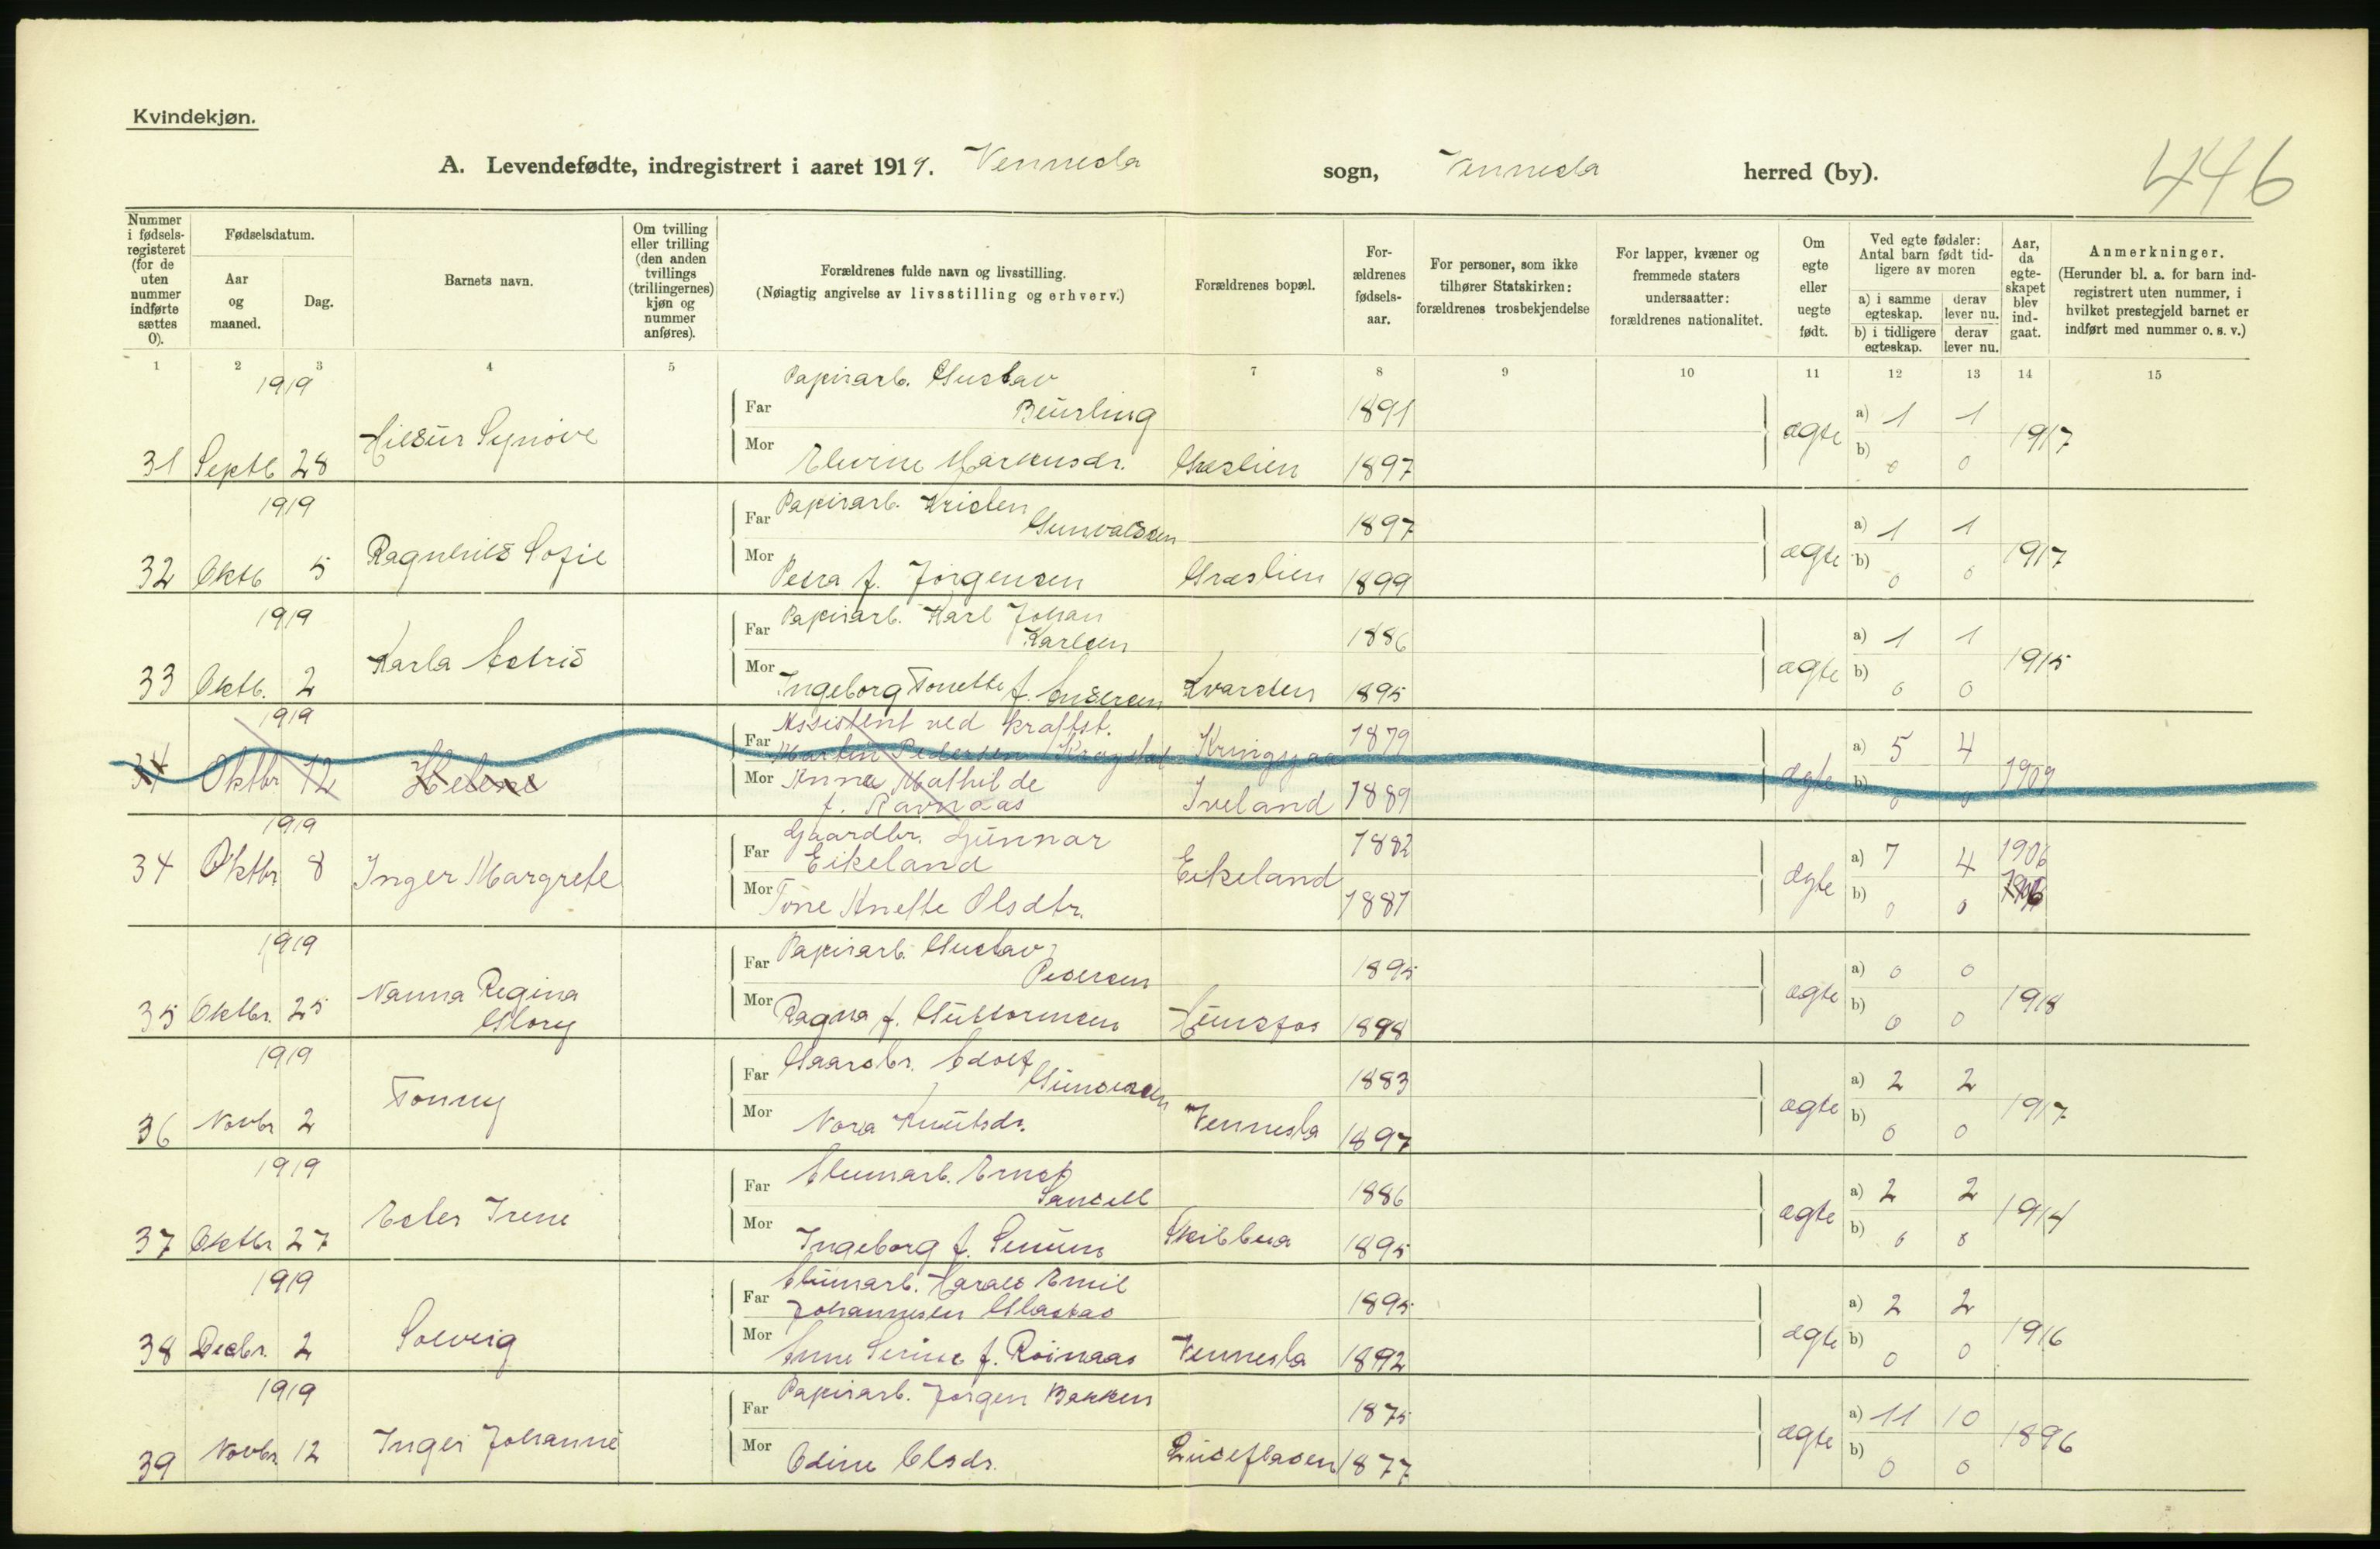 Kvindekjøn.
446
A. Levendefødte, indregistrert i aaret 1919. Vennesla sogn, Vennesla herred (by).
Nummer i fødsels-registeret (for de uten nummer indførte sættes 0).
Fødselsdatum.
Aar og maaned.
Dag.
Barnets navn.
Om tvilling eller trilling (den anden tvillings (trillingernes) kjøn og nummer anføres).
Forældrenes fulde navn og livsstilling.
(Nøiagtig angivelse av livsstilling og erhverv.)
Forældrenes bopæl.
For-ældrenes fødsels-aar.
For personer, som ikke tilhører Statskirken: forældrenes trosbekjendelse
For lapper, kvæner og fremmede staters undersaatter: forældrenes nationalitet.
Om egte eller uegte født.
Ved egte fødsler: Antal barn født tid-ligere av moren
a) i samme egteskap.
derav lever nu.
b) i tidligere egteskap.
derav lever nu.
Aar, da egte-skapet blev ind-gaat.
Anmerkninger.
(Herunder bl. a. for barn ind-registrert uten nummer, i hvilket prestegjeld barnet er indført med nummer o. s. v.)
1 2 3 4 5 7 8 9 10 11 12 13 14 15
1919
Far Papirarb. Gustav Beurling 1891 a) 1 1
31 Septb 28 Hildur Synøve
Mor Elevine Markusdr. Græslien 1897 ægte b) 0 0 1917
1919
Far Papirarb. Kristen Gunvaldsen 1897 a) 1 1
32 Oktb 5 Ragnhild Sofie
Mor Petra f. Jørgensen Græslien 1899 ægte b) 0 0 1917
1919
Far Papirarb. Karl Johan Karlsen 1886 a) 1 1
33 Oktb. 2 Karla Astrid
Mor Ingeborg Tonette f. Andersen Kvarsten 1895 ægte b) 0 0 1915
1919
Far Assistent ved kraftst. Martin Pedersen Kragstad Kringsjaa 1879 a) 5 4
34 Oktbr 12 Helene
Mor Anna Mathilde f. Ravnaas Iveland 1889 ægte b) 0 0 1909
1919
Far Gaardbr. Gunnar Eikeland 1882 a) 7 4 1906
34 Oktbr 8 Inger Margrete Eikeland
Mor Tone Anette Olsdtr. 1881 ægte b) 0 0
1919
Far Papirarb. Gustav Pedersen 1895 a) 0 0
35 Oktbr. 25 Nanna Regina Glory
Mor Ragna f. Guttormsen Hunsfos 1898 ægte b) 0 0 1918
1919
Far Gaardbr. Adolf Gundersen 1883 a) 2 2
36 Novbr 2 Tonny
Mor Nora Knutsdr. Vennesla 1897 ægte b) 0 0 1917
1919
Far Alumarb. Ernst Sandell 1886 a) 2 2
37 Oktbr 27 Ester Irene
Mor Ingeborg f. Senum Skibbua 1895 ægte b) 0 0 1914
1919
Far Alumarb. Harald Emil Johannesen Glastad 1895 a) 2 2
38 Decbr. 2 Solveig
Mor Anne Serine f. Roinaas Vennesla 1892 ægte b) 0 0 1916
1919
Far Papirarb. Jørgen Bakken 1875 a) 11 10
39 Novbr 12 Inger Johanne
Mor Odine Olsdr. Lindefladen 1877 ægte b) 0 0 1896